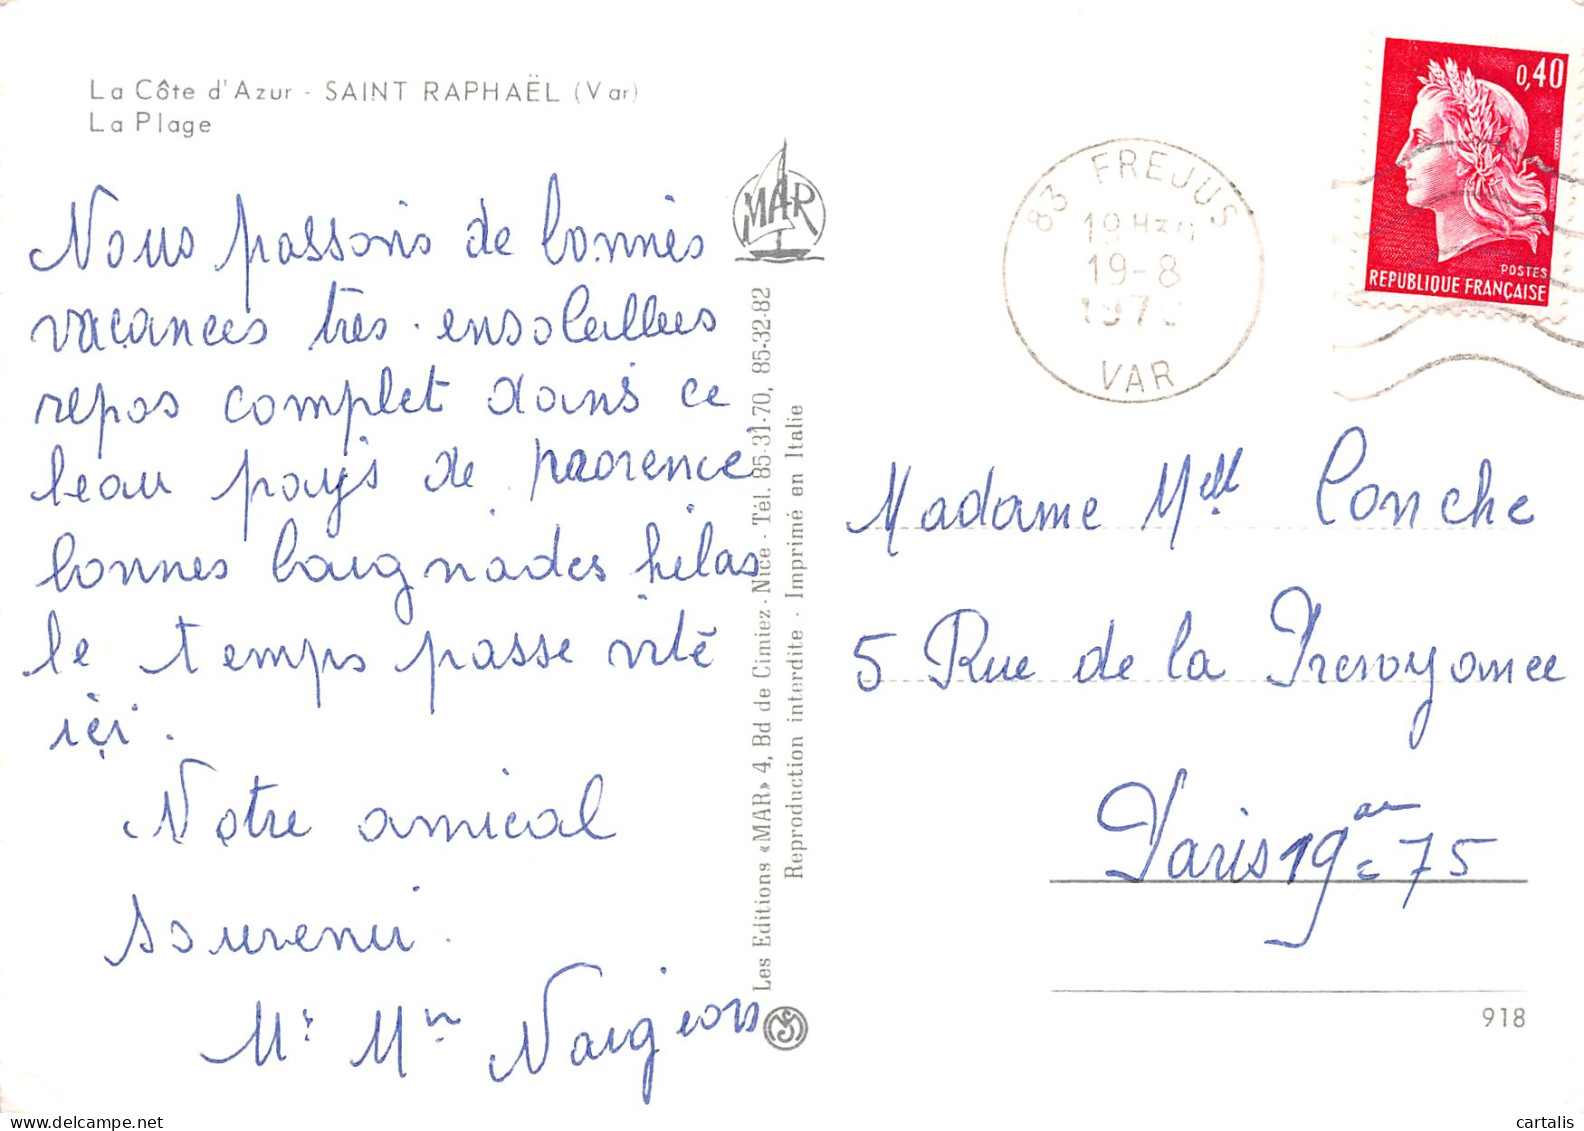 La Côte d'Azur - SAINT RAPHAËL (Var)
La Plage
Nous passons de bonnes
vacances très ensoleillees
repos complet dans ce
beau pays de provence
bonnes baignades hélas
le temps passe vite
ici.
Notre amical
souvenir.
Mr Mme Naigeon
MAR
Les Editions «MAR» 4, Bd de Cimiez - Nice - Tél. 85-31-70, 85-32-82
Reproduction interdite - Imprimé en Italie
83 FREJUS
19-8
VAR
0,40
POSTES
REPUBLIQUE FRANÇAISE
Madame Melle Conche
5 Rue de la Prevoyance
Paris 19 75
918
cartalis